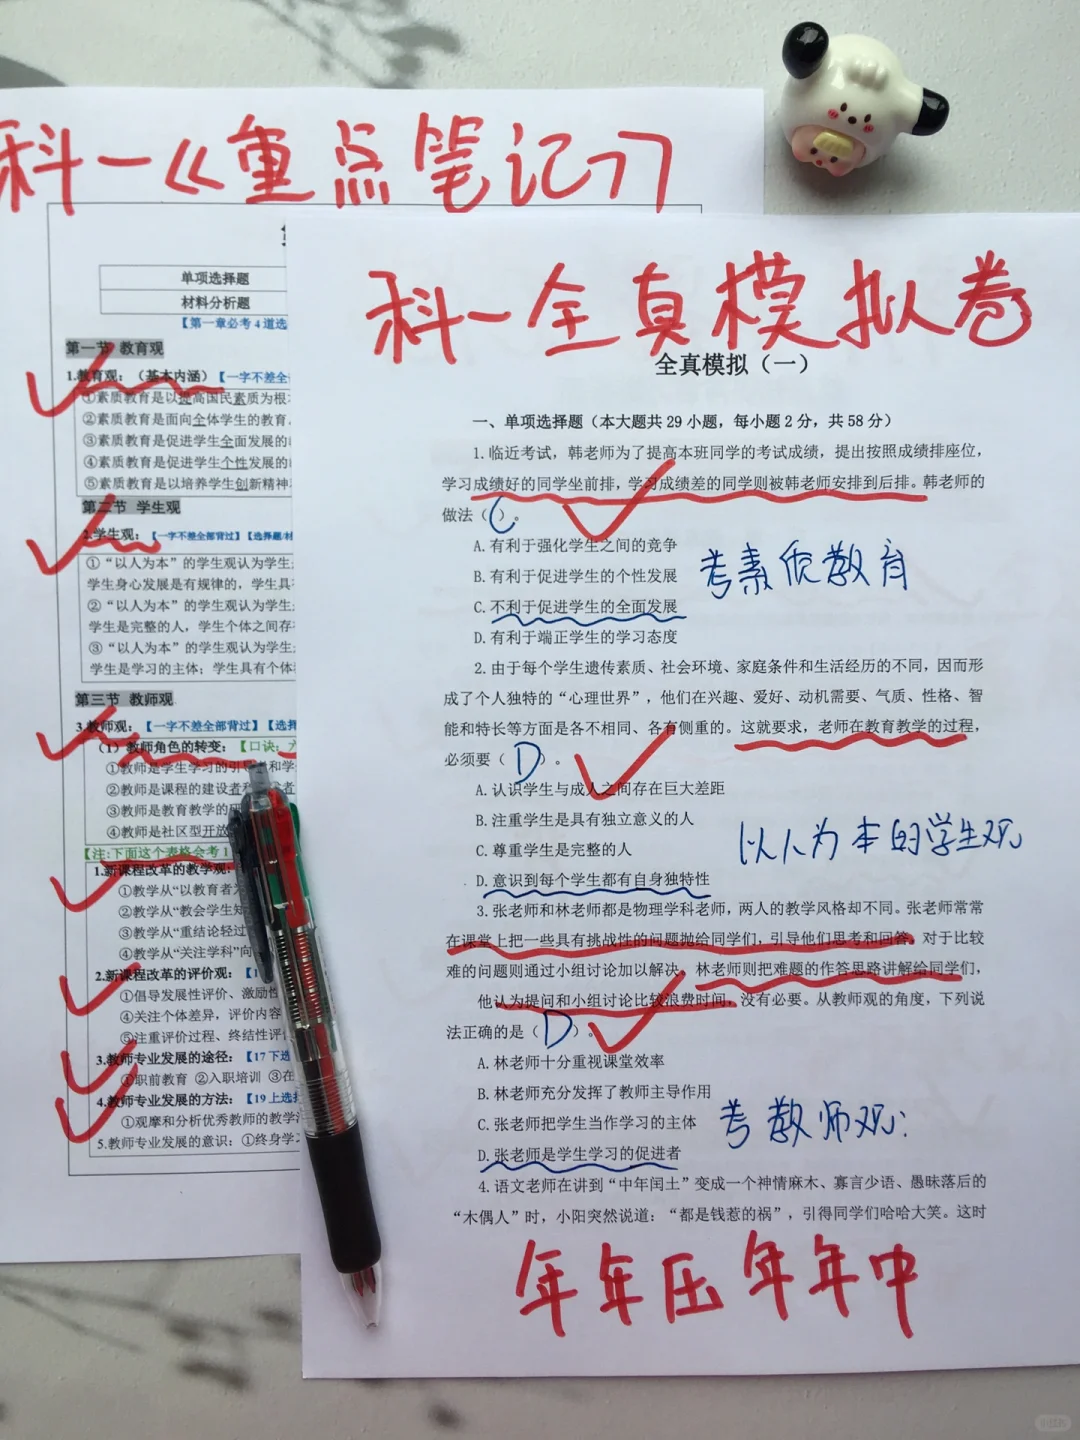 科一《重点笔记》
单项选择题
材料分析题
【第一章必考4道选
第一节 教育观
1.教育观：（基本内涵）【一字不差全
①素质教育是以提高国民素质为根
②素质教育是面向全体学生的教育
③素质教育是促进学生全面发展的
④素质教育是促进学生个性发展的
⑤素质教育是以培养学生创新精神
第二节 学生观
2.学生观：【一字不差全部背过】【选择题/材
①“以人为本”的学生观认为学生
学生身心发展是有规律的，学生具
②“以人为本”的学生观认为学生
学生是完整的人，学生个体之间存
③“以人为本”的学生观认为学生
学生是学习的主体；学生具有个体
第三节 教师观
3.教师观：【一字不差全部背过】【选择
（1）教师角色的转变：【口诀：
①教师是学生学习的引 者和学
②教师是课程的建设者和 者
③教师是教育教学的研
④教师是社区型开放
【注:下面这个表格会考1
1.新课程改革的教学观：
①教学从“以教育者为
②教学从“教会学生知
③教学从“重结论轻过
④教学从“关注学科”向
2.新课程改革的评价观：【1
①倡导发展性评价、激励性
④关注个体差异，评价内容
⑤注重评价过程、终结性评
3.教师专业发展的途径：【17下选
①职前教育 ②入职培训 ③在
4.教师专业发展的方法：【19上选
①观摩和分析优秀教师的教学
5.教师专业发展的意识：①终身学
科一全真模拟卷
全真模拟（一）
一、单项选择题（本大题共29小题，每小题2分，共58分）
1.临近考试，韩老师为了提高本班同学的考试成绩，提出按照成绩排座位，
学习成绩好的同学坐前排，学习成绩差的同学则被韩老师安排到后排。韩老师的
做法（C）。
A.有利于强化学生之间的竞争
B.有利于促进学生的个性发展
C.不利于促进学生的全面发展
D.有利于端正学生的学习态度
考素质教育
2.由于每个学生遗传素质、社会环境、家庭条件和生活经历的不同，因而形
成了个人独特的“心理世界”，他们在兴趣、爱好、动机需要、气质、性格、智
能和特长等方面是各不相同、各有侧重的。这就要求，老师在教育教学的过程，
必须要（D）。
A.认识学生与成人之间存在巨大差距
B.注重学生是具有独立意义的人
C.尊重学生是完整的人
D.意识到每个学生都有自身独特性
以人为本的学生观
3.张老师和林老师都是物理学科老师，两人的教学风格却不同。张老师常常
在课堂上把一些具有挑战性的问题抛给同学们，引导他们思考和回答。对于比较
难的问题则通过小组讨论加以解决。林老师则把难题的作答思路讲解给同学们，
他认为提问和小组讨论比较浪费时间，没有必要。从教师观的角度，下列说
法正确的是（D）。
A.林老师十分重视课堂效率
B.林老师充分发挥了教师主导作用
C.张老师把学生当作学习的主体
D.张老师是学生学习的促进者
考教师观：
4.语文老师在讲到“中年闰土”变成一个神情麻木、寡言少语、愚昧落后的
“木偶人”时，小阳突然说道：“都是钱惹的祸”，引得同学们哈哈大笑。这时
年年压年年中